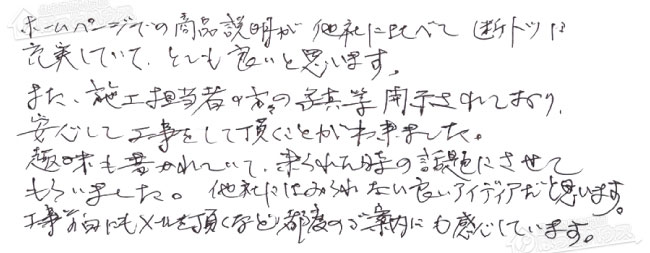 ホームページでの商品説明が他社に比べて断トツに
充実していて、とても良いと思います。
また、施工担当者の方々の写真等開示されており、
安心して工事をして頂くことが出来ました。
趣味も書かれていて、来られた時の話題にさせて
もらいました。他社にはみられない良いアイディアだと思います。
工事前日にもメールを頂くなど都度のご案内にも感心しています。